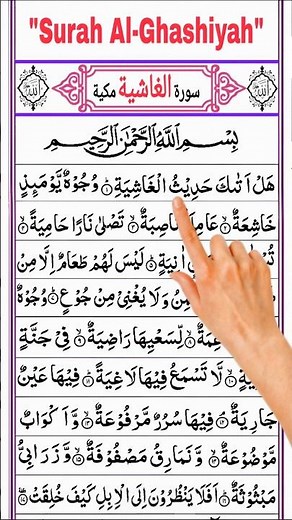 "Surah Al-Ghashiyah"
سورة الغاشية مكية
بِسْمِ اللهِ الرَّحْمٰنِ الرَّحِيْمِ
هَلْ اَتٰىكَ حَدِيْثُ الْغَاشِيَةِ ۝١ وُجُوْهٌ يَّوْمَئِذٍ
خَاشِعَةٌ ۝٢ تَصْلٰى نَارًا حَامِيَةً ۝٤
اٰنِيَةٍ ۝٥ لَيْسَ لَهُمْ طَعَامٌ اِلَّا مِنْ
وَلَا يُغْنِيْ مِنْ جُوْعٍ ۝٧ وُجُوْهٌ
لِّسَعْيِهَا رَاضِيَةٌ ۝٩ فِيْ جَنَّةٍ
لَّا تَسْمَعُ فِيْهَا لَاغِيَةً ۝١١ فِيْهَا عَيْنٌ
جَارِيَةٌ ۝١٢ فِيْهَا سُرُرٌ مَّرْفُوْعَةٌ ۝١٣ وَّاَكْوَابٌ
مَّوْضُوْعَةٌ ۝١٤ وَّنَمَارِقُ مَصْفُوْفَةٌ ۝١٥ وَّزَرَابِيُّ
مَبْثُوْثَةٌ ۝١٦ اَفَلَا يَنْظُرُوْنَ اِلَى الْاِبِلِ كَيْفَ خُلِقَتْ ۝١٧